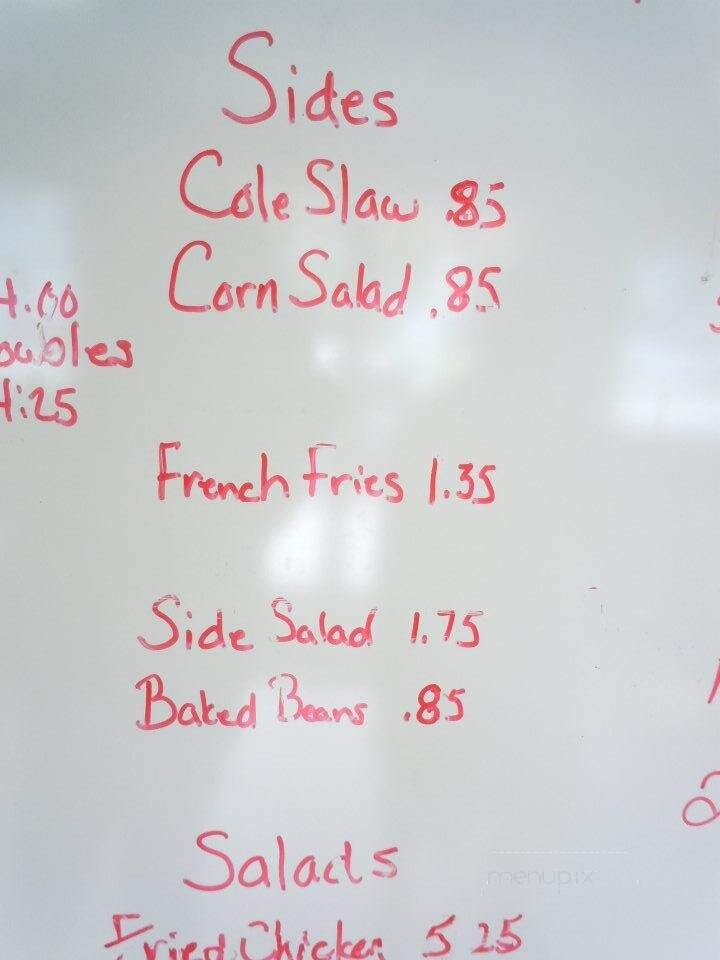 Sides
Cole Slaw .85
Corn Salad .85
4.00
4.25
French Fries 1.35
Side Salad 1.75
Baked Beans .85
Salads
Fried Chicken 5 25
menupix